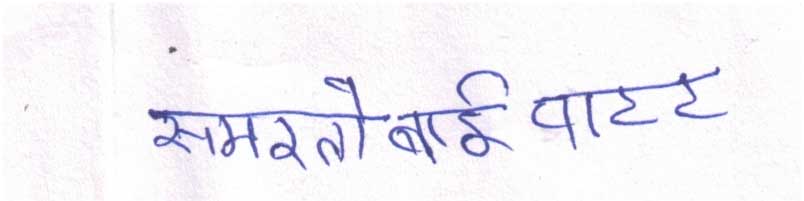 समरतो बाई वाटट